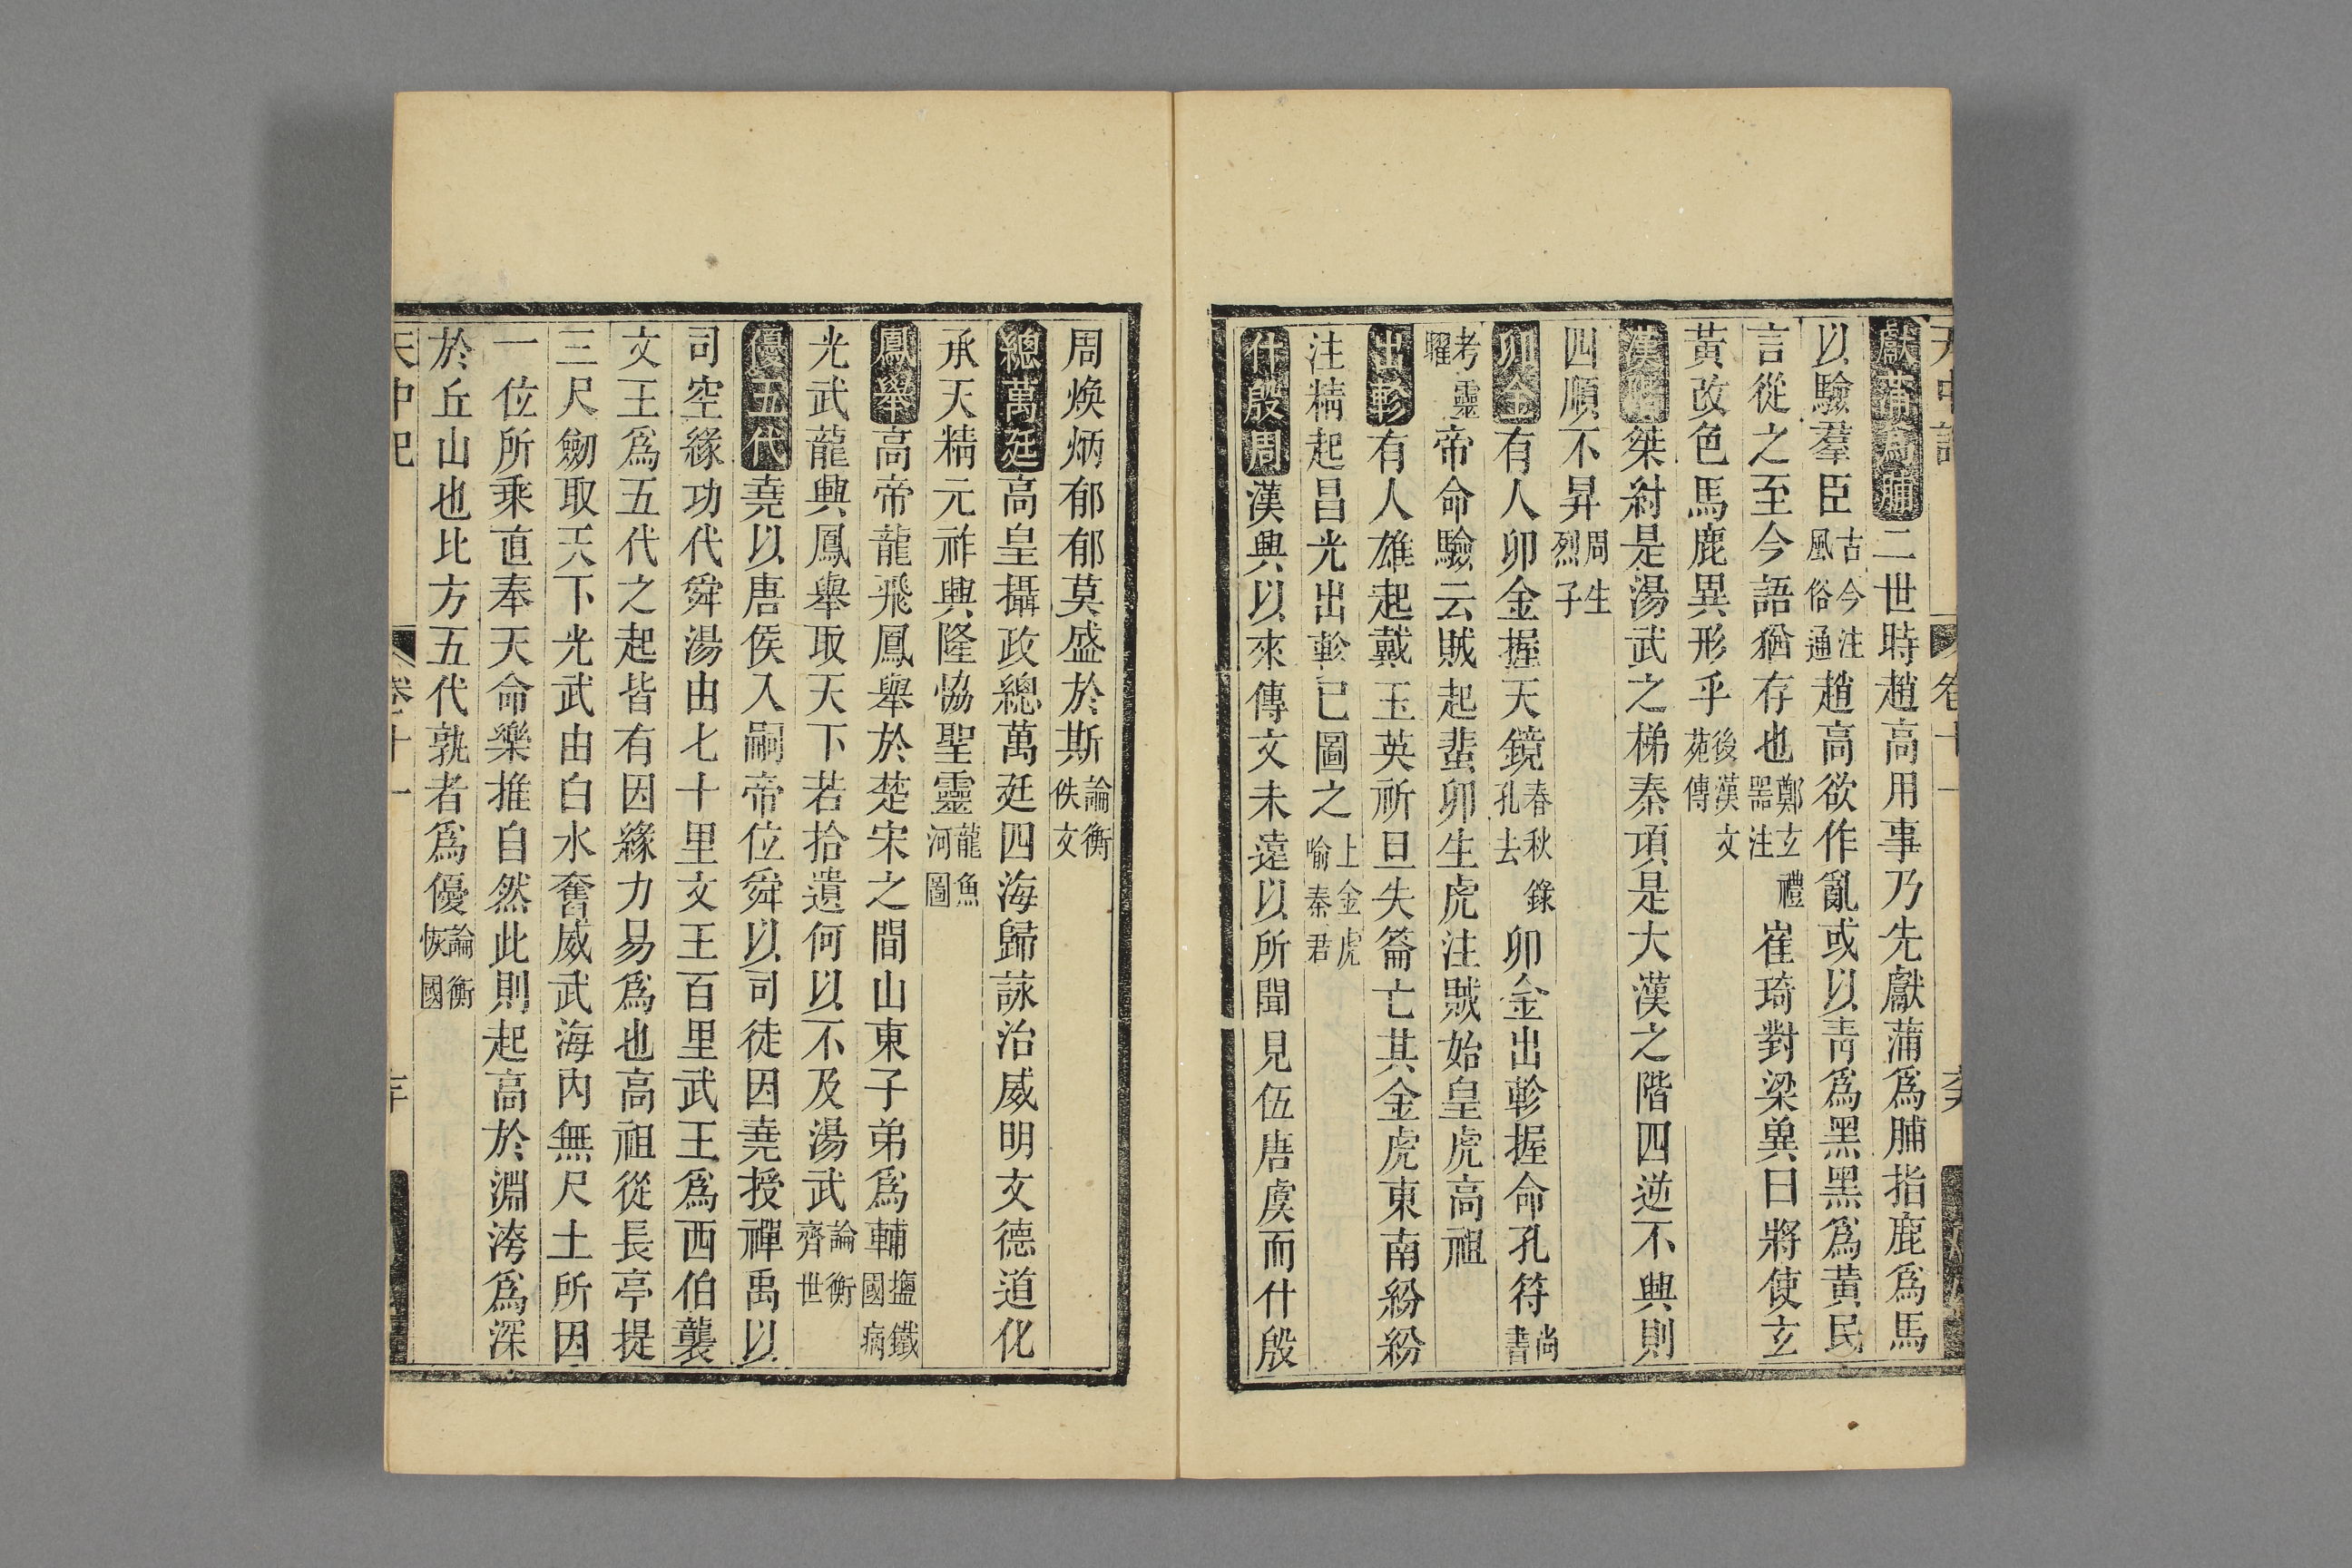 天中記 卷十一
獻蒲為脯二世時趙高用事乃先獻蒲爲脯指鹿爲馬
以驗羣臣古今注風俗通趙高欲作亂或以青爲黑黑爲黃民
言從之至今語猶存也鄭玄禮噐注崔琦對梁兾曰將使玄
黃改色馬鹿異形乎後漢文苑傳
漢階桀紂是湯武之梯秦項是大漢之階四逆不興則
四順不昇周生烈子
卯金有人卯金握天鏡春秋錄孔去卯金出軫握命孔符尚書
考靈曜帝命驗云賊起蜚卯生虎注賊始皇虎高祖
出軫有人雄起戴玉英祈旦失籥亡其金虎東南紛紛
注精起昌光出軫已圖之上金虎喻秦君
什殷周漢興以來傳文未遠以所聞見伍唐虞而什殷
周煥炳郁郁莫盛於斯論衡佚文
總萬廷高皇攝政總萬廷四海歸詠治威明文德道化
承天精元祚興隆恊聖靈龍魚河圖
鳳舉高帝龍飛鳳舉於楚宋之間山東子弟爲輔塩鐵國病
光武龍興鳳舉取天下若拾遺何以不及湯武論衡齊世
優五代堯以唐侯入嗣帝位舜以司徒因堯授禪禹以
司空緣功代舜湯由七十里文王百里武王爲西伯襲
文王爲五代之起皆有因緣力易爲也高祖從長亭提
三尺劒取天下光武由白水奮威武海內無尺土所因
一位所乘直奉天命樂推自然此則起高於淵洿爲深
於丘山也比方五代孰者爲優論衡恢國
天中記 卷十一